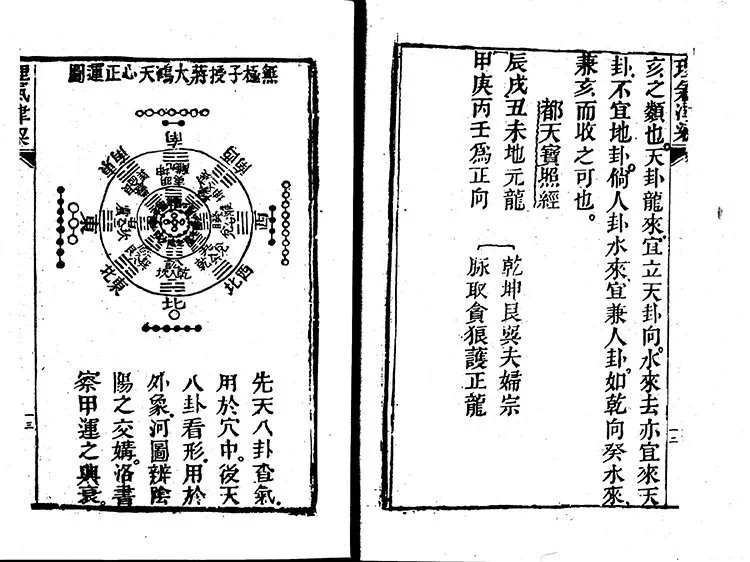 亥之類也。天卦龍來。宜立天卦向。水來去亦宜來天
卦。不宜地卦。倘人卦水來。宜兼人卦。如乾向癸水來。
兼亥而收之可也。
都天寶照經
辰戌丑未地元龍
乾坤艮巽夫婦宗
甲庚丙壬爲正向
脉取貪狼護正龍
一二
無極子授蔣大鴻天心正運圖
南
西南
西
西北
北
東北
東
東南
先天八卦查氣。
用於穴中。後天
八卦看形。用於
外象。河圖辨陰
陽之交媾。洛書
察甲運之興衰。
理氣津梁
一三